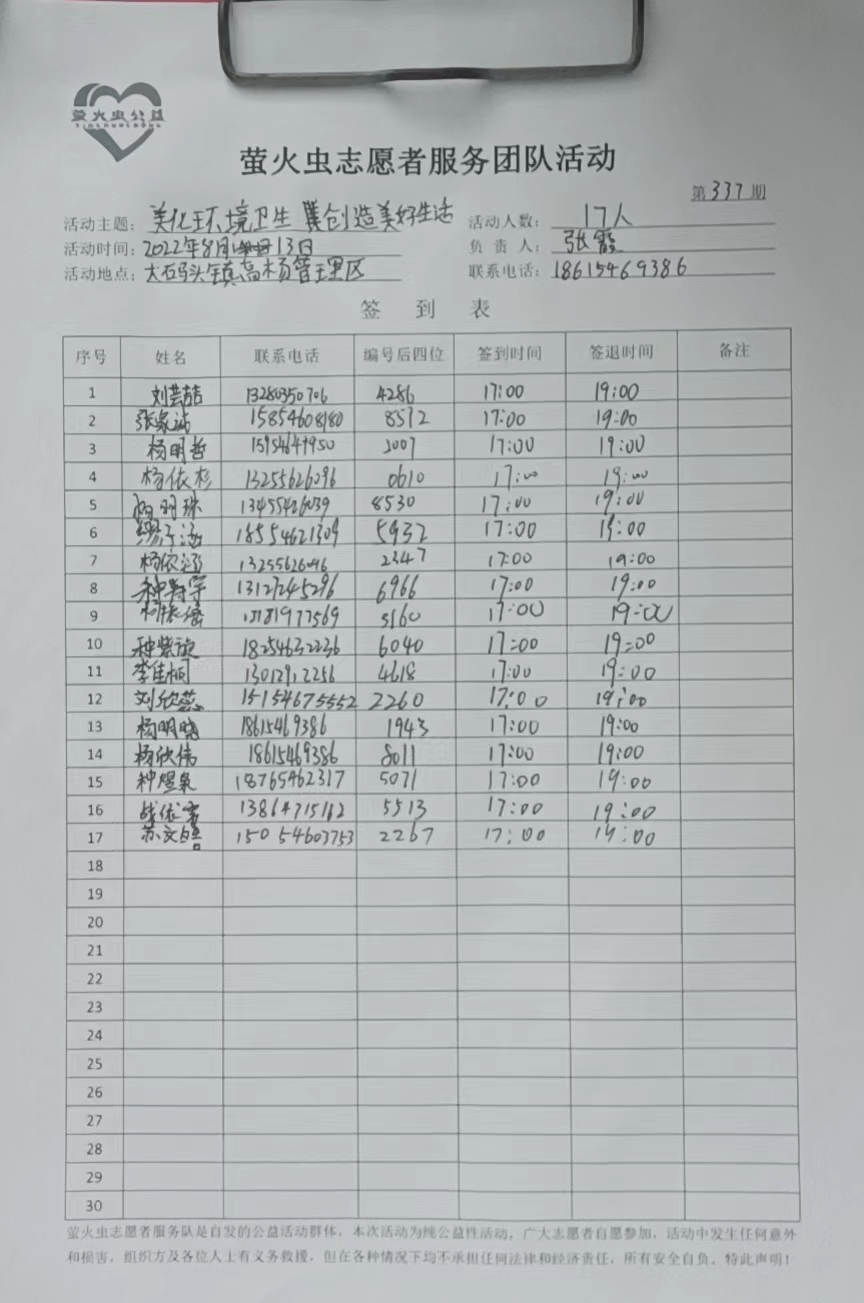 萤火虫公益
YINGHUOCHONG
萤火虫志愿者服务团队活动
第337期
活动主题: 美化环境卫生 创造美好生活 活动人数: 17人
活动时间: 2022年8月13日 负责人: 张霞
活动地点: 大石马头镇高杨管理区 联系电话: 18615469386
签到表
序号 姓名 联系电话 编号后四位 签到时间 签退时间 备注
1 刘芸喆 13280350706 4286 17:00 19:00
2 张家诚 15854608180 8572 17:00 19:00
3 杨明哲 15954649950 2007 17:00 19:00
4 杨依杉 13255626096 0610 17:00 19:00
5 杨明珠 13455426039 8530 17:00 19:00
6 18554621309 5932 17:00 19:00
7 杨依涵 13255626096 2347 17:00 19:00
8 13127245296 6966 17:00 19:00
9 15781977569 3160 17:00 19:00
10 种紫旋 18254632236 6040 17:00 19:00
11 李佳桐 13012912256 4618 17:00 19:00
12 刘欣蕊 15154675552 2260 17:00 19:00
13 杨明晓 18615469386 1943 17:00 19:00
14 杨欣伟 18615469386 8011 17:00 19:00
15 种煜泉 18765462317 5071 17:00 19:00
16 13864715162 5513 17:00 19:00
17 苏文 15054603753 2267 17:00 19:00
18
19
20
21
22
23
24
25
26
27
28
29
30
萤火虫志愿者服务队是自发的公益活动群体，本次活动为纯公益性活动，广大志愿者自愿参加，活动中发生任何意外
和损害，组织方及各位人士有义务救援，但在各种情况下均不承担任何法律和经济责任，所有安全自负。特此声明！